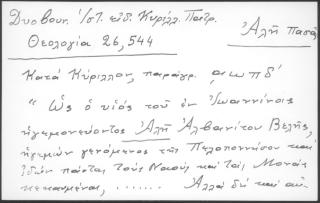 Δυοβουν. ἱστ. εἰδ. Κυρίλλ. Πατρ.
Θεολογία 26, 544
Ἀλῆ Πασᾶ
Κατὰ Κύριλλον, παράγρ. αωπδ´
"Ὡς ὁ υἱὸς τοῦ ἐν Ἰωαννίνοις
ἡγεμονεύοντος Ἀλῆ Ἀλβανίτου Βελῆς,
ἡγεμὼν γενόμενος τῆς Πελοποννήσου καὶ
ἰδὼν πάντας τοὺς Ναοὺς καὶ τὰς Μονὰς
κεκαυμένας, ...... Ἀλλὰ δὴ καὶ αὐ-